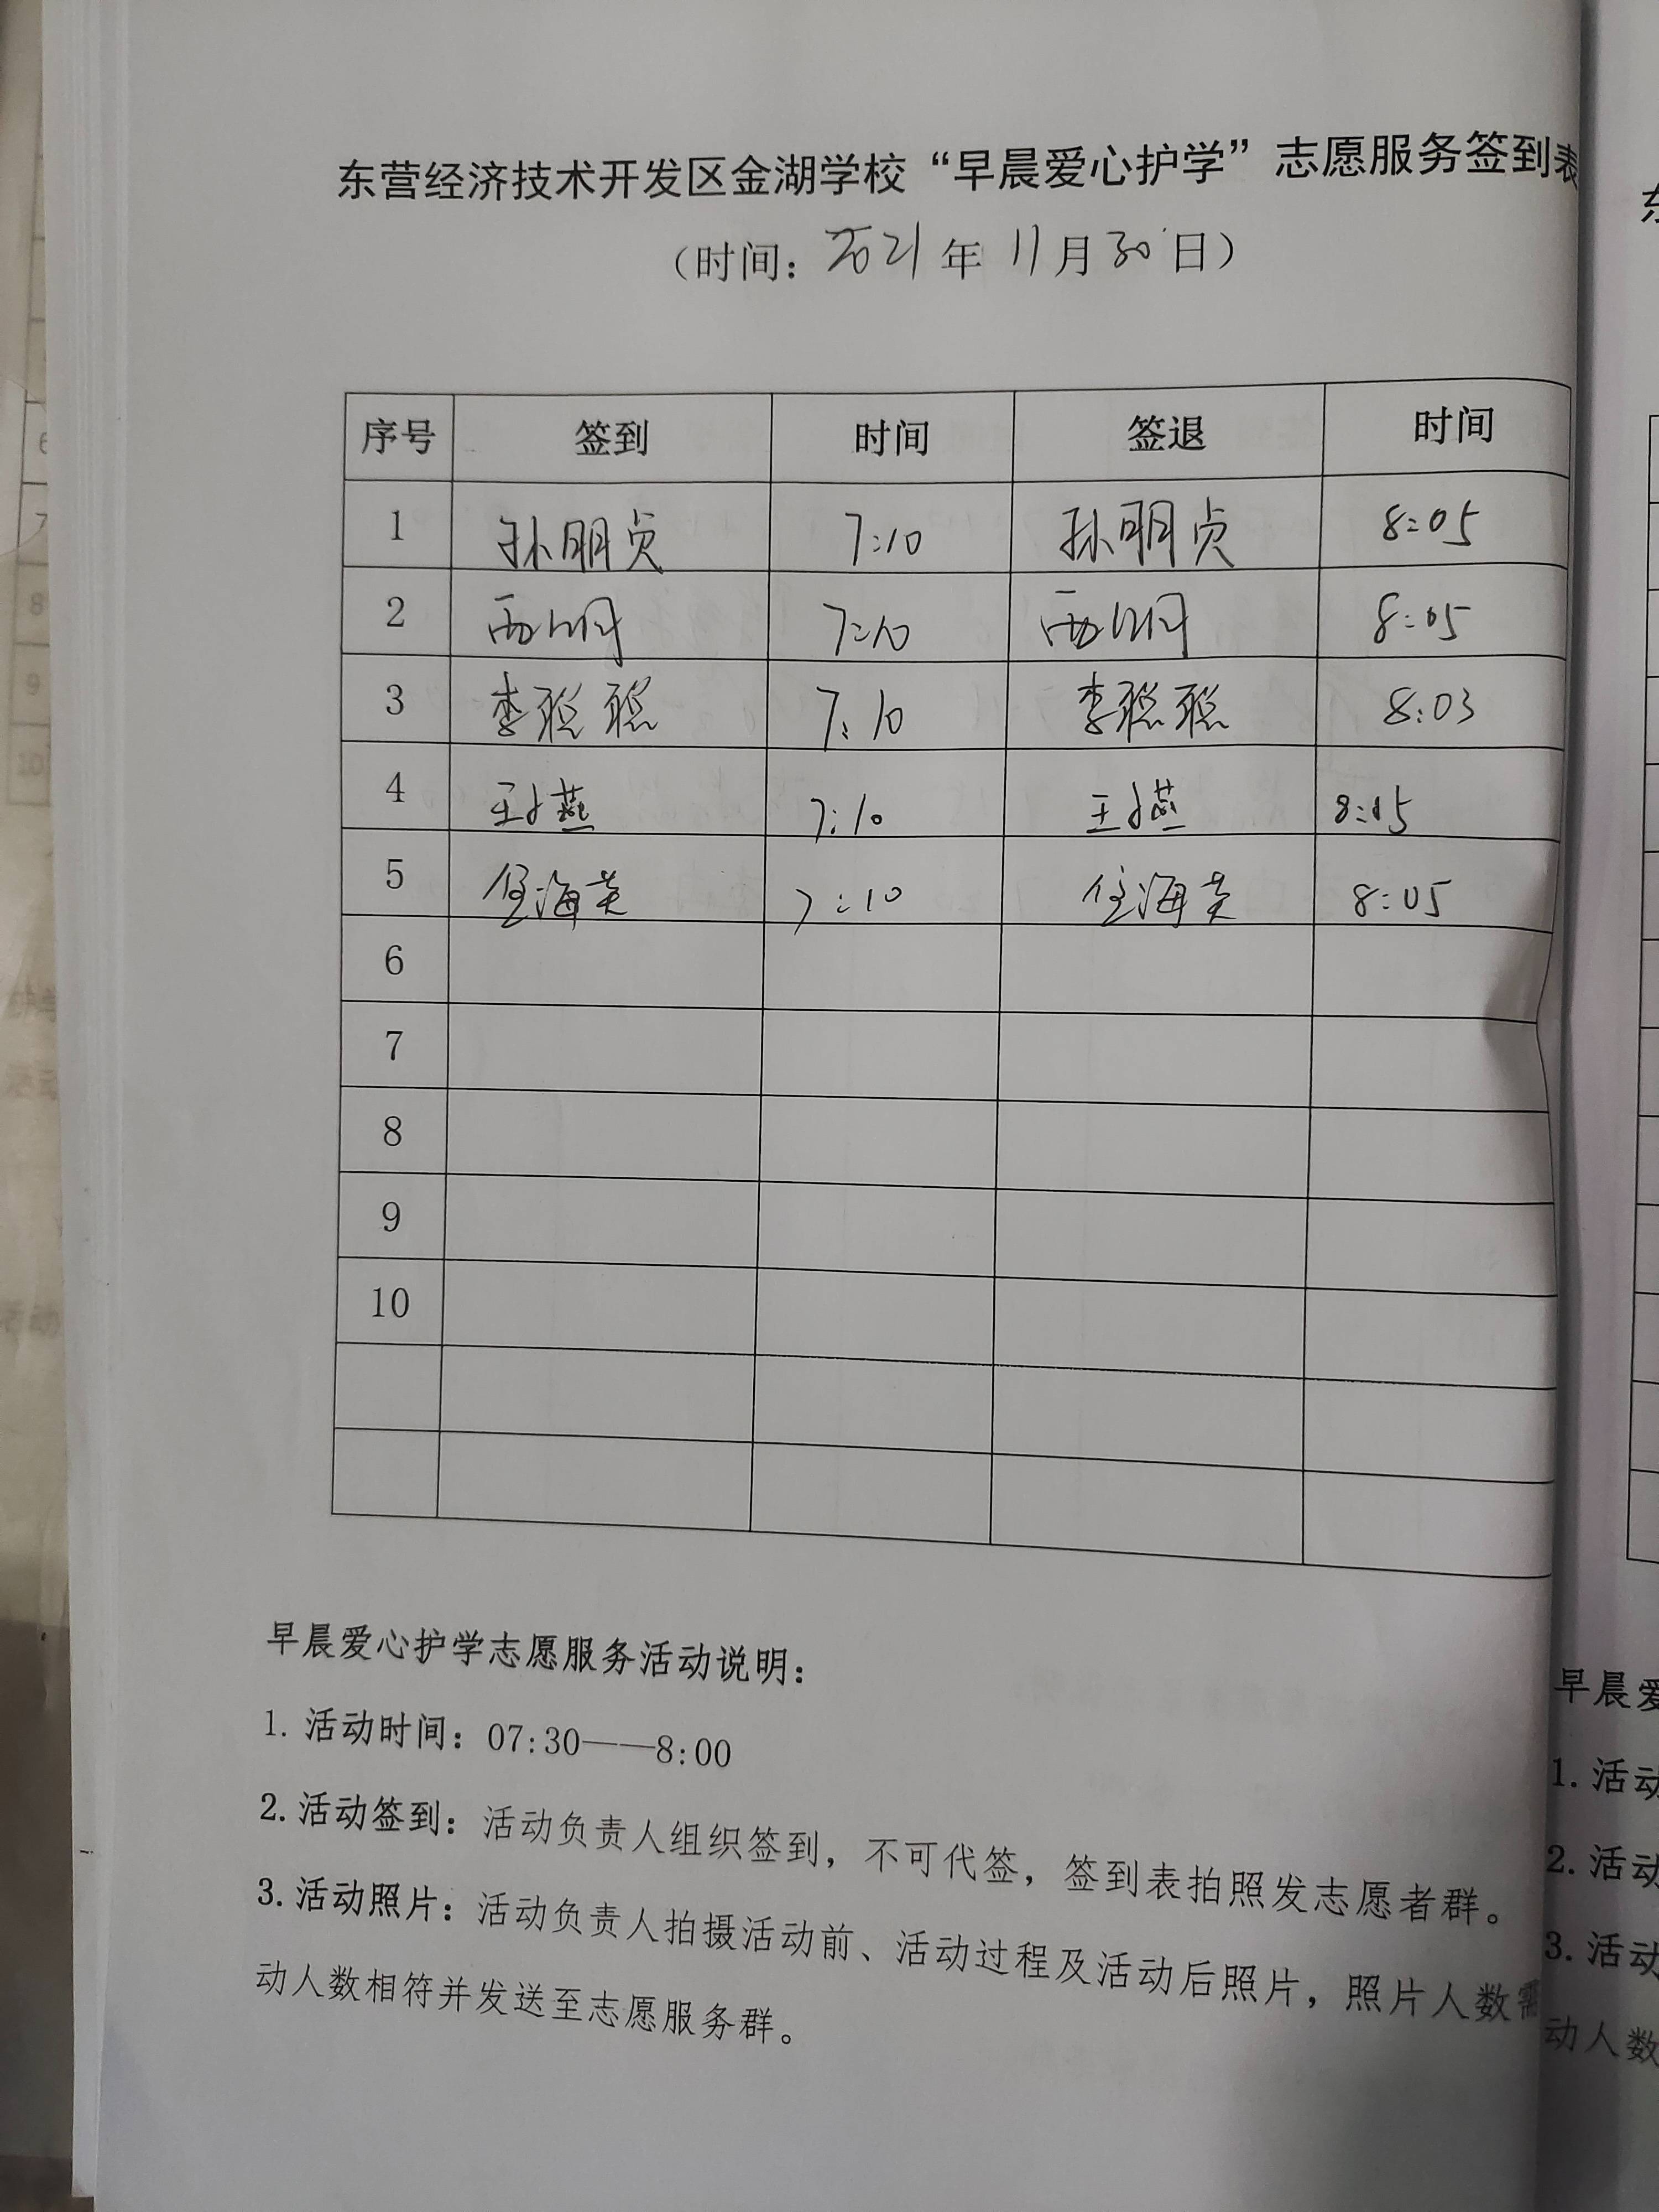 东营经济技术开发区金湖学校“早晨爱心护学”志愿服务签到表
（时间：2021年11月30日）
序号 签到 时间 签退 时间
1 孙明贞 7:10 孙明贞 8:05
2 7:10 8:05
3 李聪聪 7:10 李聪聪 8:03
4 王燕 7:10 王燕 8:05
5 任海英 7:10 任海英 8:05
6
7
8
9
10
早晨爱心护学志愿服务活动说明：
1. 活动时间：07:30——8:00
2. 活动签到：活动负责人组织签到，不可代签，签到表拍照发志愿者群。
3. 活动照片：活动负责人拍摄活动前、活动过程及活动后照片，照片人数需
动人数相符并发送至志愿服务群。
早晨爱
1. 活动
2. 活动
3. 活动
动人数